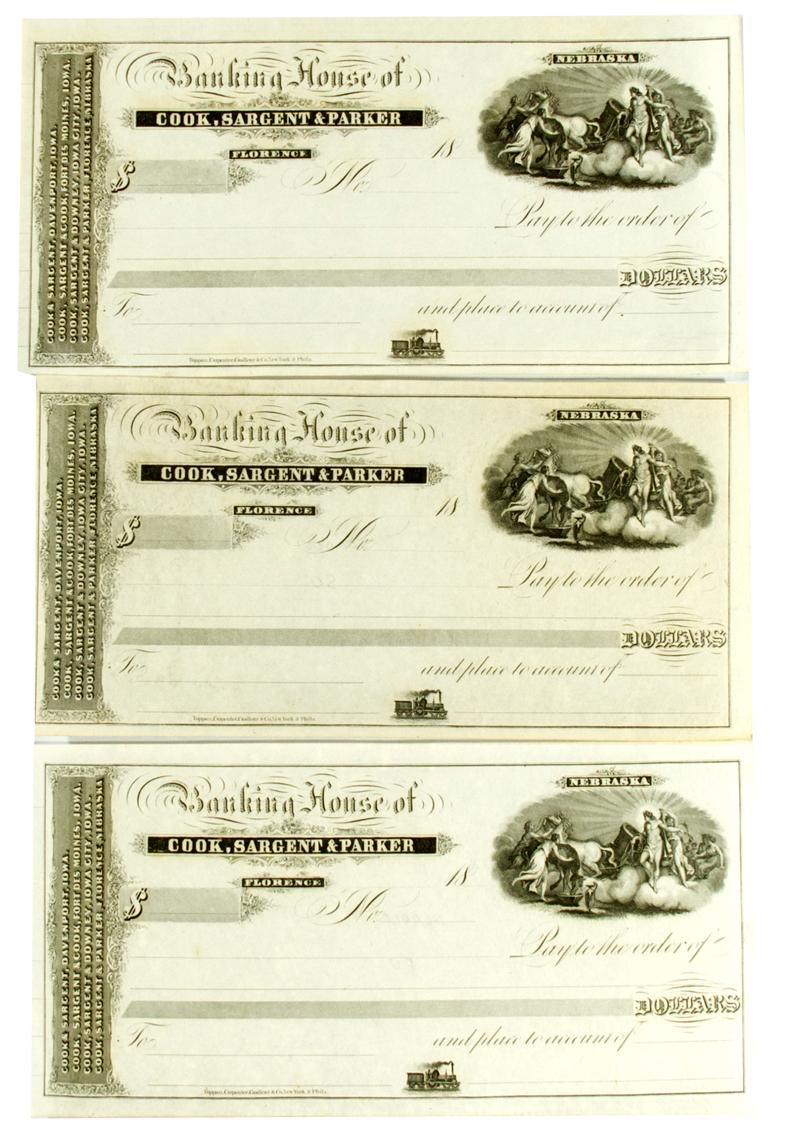 COOK & SARGENT, DAVENPORT, IOWA.
COOK, SARGENT & COOK, FORT DES MOINES, IOWA.
COOK, SARGENT & DOWNEY, IOWA CITY, IOWA.
COOK, SARGENT & PARKER, FLORENCE, NEBRASKA
Banking House of
NEBRASKA
COOK, SARGENT & PARKER
FLORENCE
18
$
No.
Pay to the order of
DOLLARS
To
and place to account of
Toppan, Carpenter, Casilear & Co. New York & Phila.
COOK & SARGENT, DAVENPORT, IOWA.
COOK, SARGENT & COOK, FORT DES MOINES, IOWA.
COOK, SARGENT & DOWNEY, IOWA CITY, IOWA.
COOK, SARGENT & PARKER, FLORENCE, NEBRASKA
Banking House of
NEBRASKA
COOK, SARGENT & PARKER
FLORENCE
18
$
No.
Pay to the order of
DOLLARS
To
and place to account of
Toppan, Carpenter, Casilear & Co. New York & Phila.
COOK & SARGENT, DAVENPORT, IOWA.
COOK, SARGENT & COOK, FORT DES MOINES, IOWA.
COOK, SARGENT & DOWNEY, IOWA CITY, IOWA.
COOK, SARGENT & PARKER, FLORENCE, NEBRASKA
Banking House of
NEBRASKA
COOK, SARGENT & PARKER
FLORENCE
18
$
No.
Pay to the order of
DOLLARS
To
and place to account of
Toppan, Carpenter, Casilear & Co. New York & Phila.